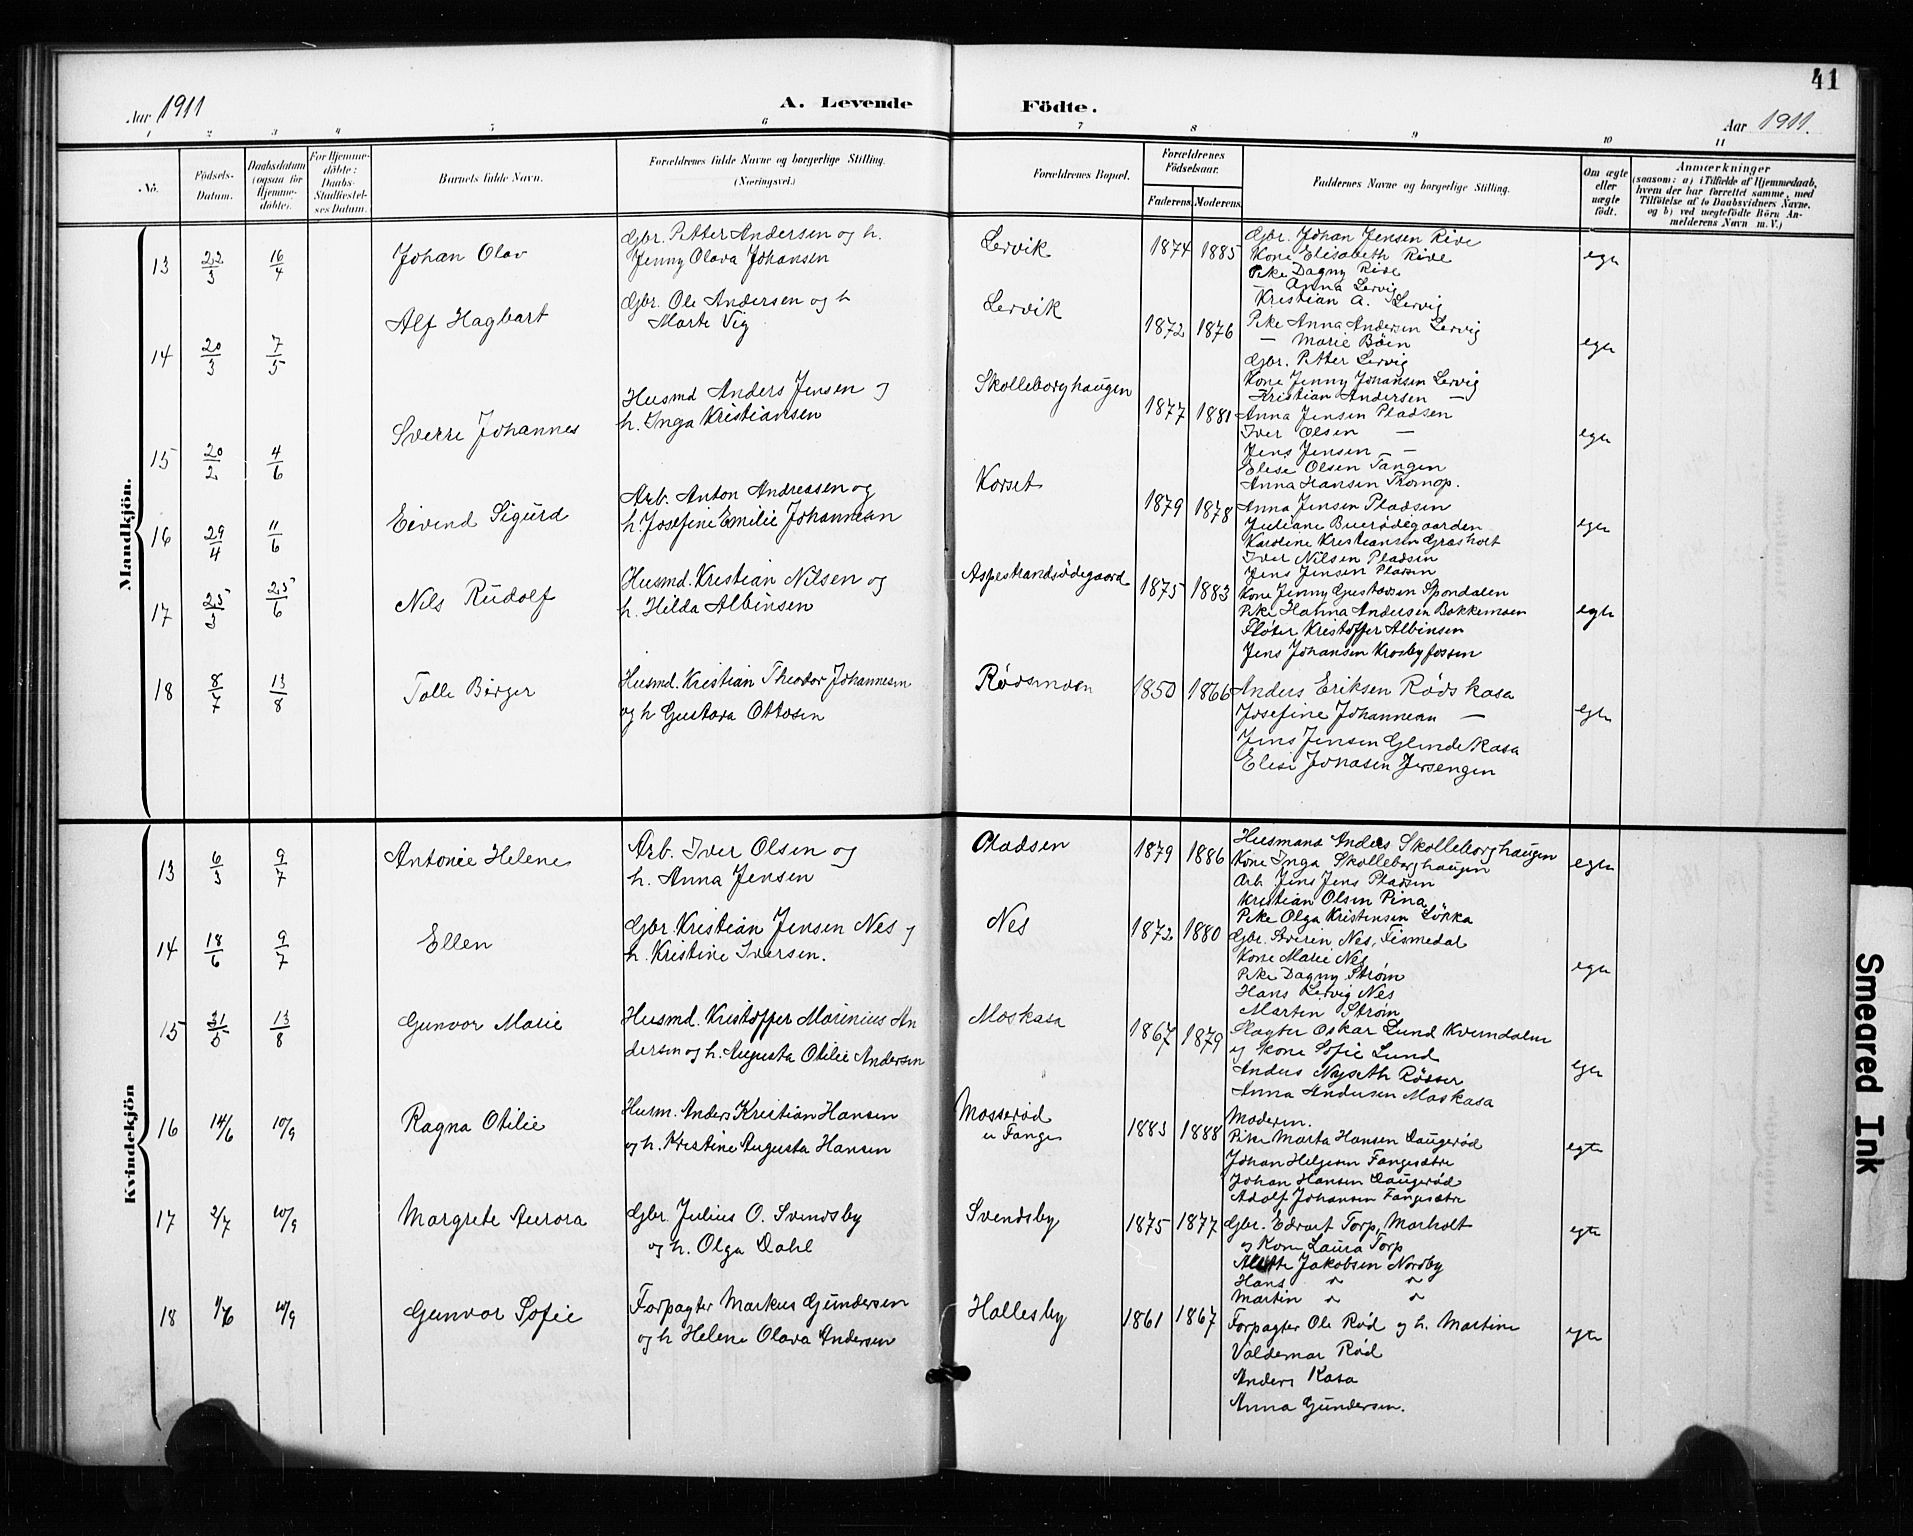 41
Aar 1911
A. Levende Födte.
Aar 1911.
1 2 3 4 5 6 7 8 9 10 11
No.
Födsels-
Datum.
Daabsdatum
(ogsaa for
Hjemme-
döbte).
For Hjemme-
döbte:
Daabs-
Stadfæstel-
ses Datum.
Barnets fulde Navn.
Forældrenes fulde Navne og borgerlige Stilling.
(Næringsvei.)
Forældrenes Bopæl.
Forældrenes
Födselsaar.
Faderens. Moderens.
Faddernes Navne og borgerlige Stilling.
Om ægte
eller
uægte
født.
Anmærkninger
(saasom: a) i Tilfælde af Hjemmedaab,
hvem der har forrettet samme, med
Tilföielse af to Daabsvidners Navne,
og b) ved uægtefödte Börn An-
melderens Navn m. V.)
Mandkjön.
13 22/3 16/4 Johan Olav
Gbr. Petter Andersen og h.
Jenny Olava Johansen
Lervik 1874 1885
Gbr. Johan Jensen Rive
Kone Elisabeth Rive
Pike Dagny Rive
— Anna Lervig
Kristian A. Lervig
egte
14 20/3 7/5 Alf Hagbart
Gbr. Ole Andersen og h
Marte Vig
Lervik 1872 1876
Pike Anna Andersen Lervig
— Marie Böen
Gbr. Petter Lervig
Kone Jenny Johansen Lervig
Kristian Andersen —
egte
15 20/2 4/6 Sverre Johannes
Husmd Anders Jensen og
h. Inga Kristiansen
Skolleborghaugen 1877 1881
Anna Jensen Pladsen
Iver Olsen —
Jens Jensen —
Elise Olsen Tangen
Anna Hansen
egte
16 29/4 11/6 Eivind Sigurd
Arb. Anton Andreasen og
h. Josefine Emilie Johannesen
Korset 1879 1878
Anna Jensen Pladsen
Juliane Buerødegaarden
Karoline Kristiansen Græsholt
Iver Nilsen Pladsen
Jens Jensen Pladsen
egte
17 25/3 25/6 Nils Rudolf
Husmd. Kristian Nilsen og
h. Hilda Albinsen
Aspestrandsödegaard 1875 1883
Kone Jenny Gustavsen Spondalen
Pike Hanna Andersen Bakkemoen
Fløter Kristoffer Albinsen
Jens Johansen Krosbyfossen
egte
18 8/7 13/8 Tolle Børger
Husmd. Kristian Theodor Johannesen
og h Gustava Ottosen
Rødsmoen 1850 1866
Anders Eriksen Röds kasa
Josefine Johannesen —
Jens Jensen Glende kasa
Elise Jonasen Jersengen
egte
Kvindekjön
13 6/3 9/7 Antonie Helene
Arb. Iver Olsen og
h. Anna Jensen
Pladsen 1879 1886
Husmans Anders Skolleborghaugen
Kone Inga Skolleborghaugen
Arb. Jens Jens Pladsen
Kristian Olsen Pina
Pike Olga Kristensen Lökka
egte
14 18/6 9/7 Ellen
Gbr. Kristian Jensen Nes og
h. Kristine Iversen.
Nes 1872 1880
Gbr. Severin Nes, Fismedal
Kone Marie Nes
Pike Dagny Strøm
Hans Lervig Nes
Martin Strøm
egte
15 31/5 13/8 Gunvor Marie
Husmd. Kristoffer Marinius An
dersen og h. Augusta Otilie Andersen
Moskasa 1867 1879
Slagter Oskar Lund Kverndalen
og kone Sofie Lund
Anders Nyseth Rösser
Anna Andersen Moskasa
egte
16 14/6 10/9 Ragna Otilie
Husm. Anders Kristian Hansen
og h. Kristine Augusta Hansen
Mosserød
u Fange 1883 1888
Moderen.
Pike Marta Hansen Daugerød
Johan Helgesen Fangesætre
Johan Hansen Daugerød
Adolf Johansen Fangesætre
egte
17 2/7 10/9 Margrete Aurora
Gbr. Julius O. Svendsby
og h. Olga Dahl
Svendsby 1875 1877
Gbr. Edvart Torp, Marholt
og Kone Laura Torp
Alette Jakobsen Norsby
Hans " "
Martin " "
egte
18 1/6 10/9 Gunvor Sofie
Forpagter Markus Gundersen
og h Helene Olava Andersen
Hallesby 1861 1867
Forpagter Ole Rød og h. Martine
Valdemar Rød
Anders Kasa
Anna Gundersen.
egte
Smeared Ink